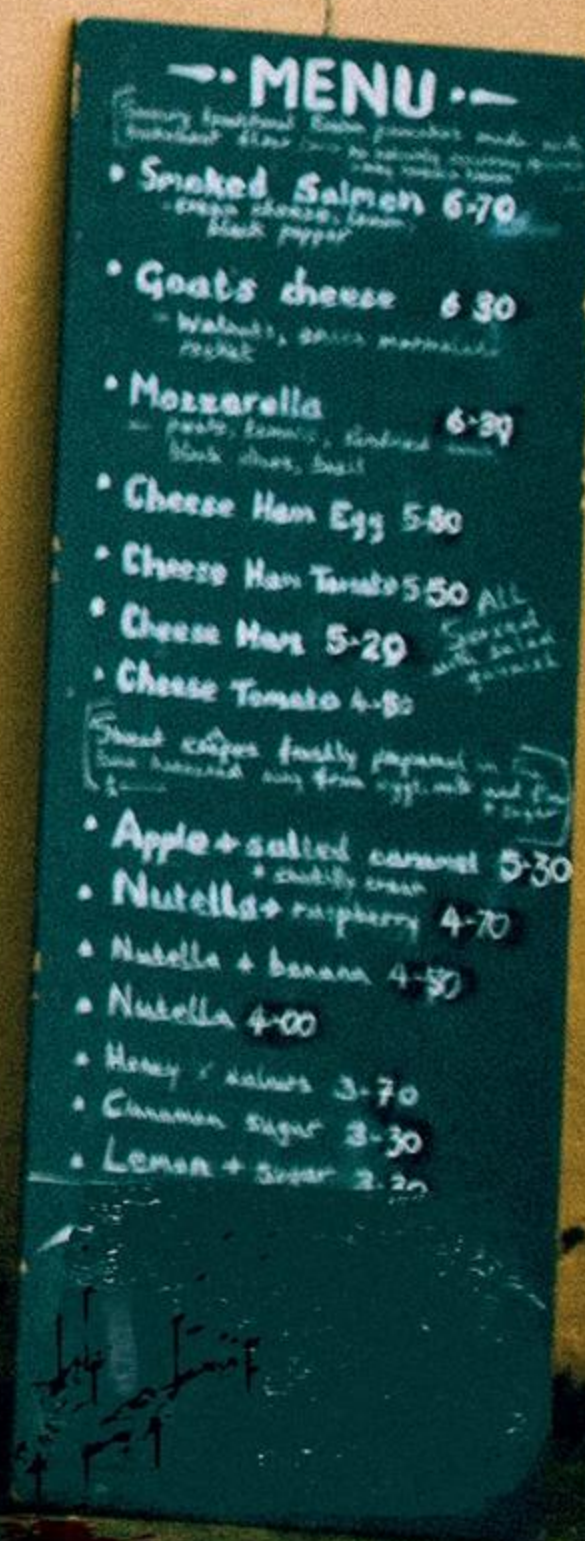 MENU
Savoury traditional Breton pancakes made with
buckwheat flour
• Smoked Salmon 6-70
- cream cheese, lemon,
black pepper
• Goats cheese 6 30
- Walnuts, onion marmalade
rocket
• Mozzarella 6-30
- pesto, tomato, sundried
black olives, basil
• Cheese Ham Egg 5-80
• Cheese Ham Tomato 5 50
All
Served
with salad
garnish
• Cheese Ham 5-20
• Cheese Tomato 4-80
Sweet crêpes freshly prepared in
from eggs, milk and flour
+ sugar
• Apple + salted caramel 5-30
+ chantilly cream
• Nutella + raspberry 4-70
• Nutella + banana 4-50
• Nutella 4-00
• Honey walnuts 3-70
• Cinnamon sugar 3-30
• Lemon + sugar 3-20